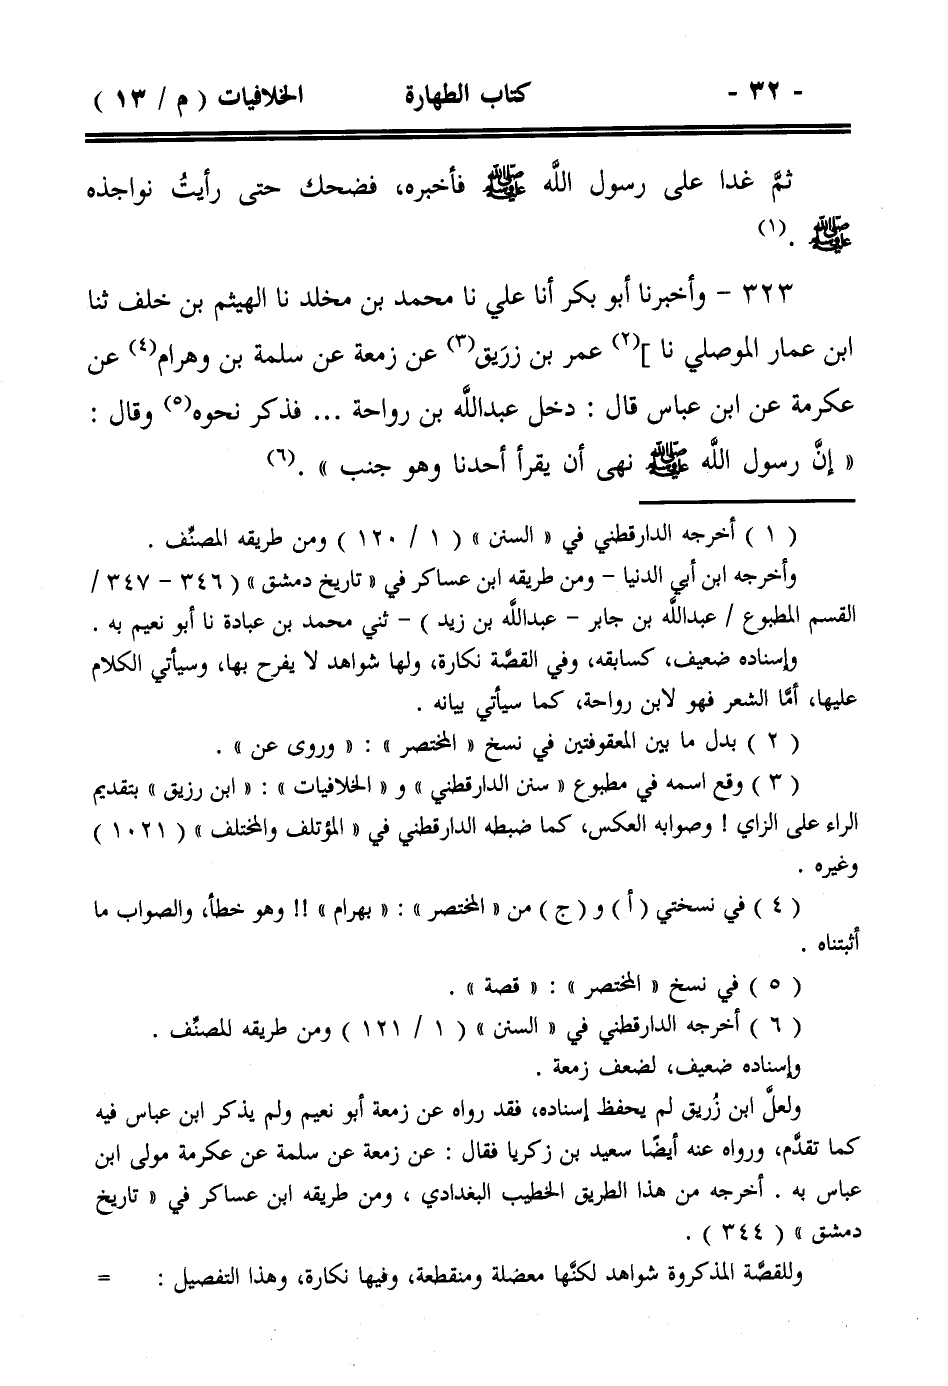 - ٣٢ - كتاب الطهارة الخلافيات ( م / ١٣ )
ثمَّ غدا على رسول اللَّه ﷺ فأخبره، فضحك حتى رأيتُ نواجذه
ﷺ .(١)
٣٢٣ - وأخبرنا أبو بكر أنا علي نا محمد بن مخلد نا الهيثم بن خلف ثنا
ابن عمار الموصلي نا ](٢) عمر بن زرَيق(٣) عن زمعة عن سلمة بن وهرام(٤) عن
عكرمة عن ابن عباس قال : دخل عبداللَّه بن رواحة ... فذكر نحوه(٥) وقال :
« إنَّ رسول اللَّه ﷺ نهى أن يقرأ أحدنا وهو جنب » .(٦)
( ١ ) أخرجه الدارقطني في « السنن » ( ١ / ١٢٠ ) ومن طريقه المصنِّف .
وأخرجه ابن أبي الدنيا - ومن طريقه ابن عساكر في « تاريخ دمشق » ( ٣٤٦ - ٣٤٧ /
القسم المطبوع / عبداللَّه بن جابر - عبداللَّه بن زيد ) - ثني محمد بن عبادة نا أبو نعيم به .
وإسناده ضعيف، كسابقه، وفي القصَّة نكارة، ولها شواهد لا يفرح بها، وسيأتي الكلام
عليها، أمَّا الشعر فهو لابن رواحة، كما سيأتي بيانه .
( ٢ ) بدل ما بين المعقوفتين في نسخ « المختصر » : « وروى عن » .
( ٣ ) وقع اسمه في مطبوع « سنن الدارقطني » و « الخلافيات » : « ابن رزيق » بتقديم
الراء على الزاي ! وصوابه العكس، كما ضبطه الدارقطني في « المؤتلف والمختلف » ( ١٠٢١ )
وغيره .
( ٤ ) في نسختي ( أ ) و ( ج ) من « المختصر » : « بهرام » !! وهو خطأ، والصواب ما
أثبتناه .
( ٥ ) في نسخ « المختصر » : « قصة » .
( ٦ ) أخرجه الدارقطني في « السنن » ( ١ / ١٢١ ) ومن طريقه للمصنِّف .
وإسناده ضعيف، لضعف زمعة .
ولعلَّ ابن زُريق لم يحفظ إسناده، فقد رواه عن زمعة أبو نعيم ولم يذكر ابن عباس فيه
كما تقدَّم، ورواه عنه أيضًا سعيد بن زكريا فقال : عن زمعة عن سلمة عن عكرمة مولى ابن
عباس به . أخرجه من هذا الطريق الخطيب البغدادي ، ومن طريقه ابن عساكر في « تاريخ
دمشق » ( ٣٤٤ ) .
وللقصَّة المذكروة شواهد لكنَّها معضلة ومنقطعة، وفيها نكارة، وهذا التفصيل : =